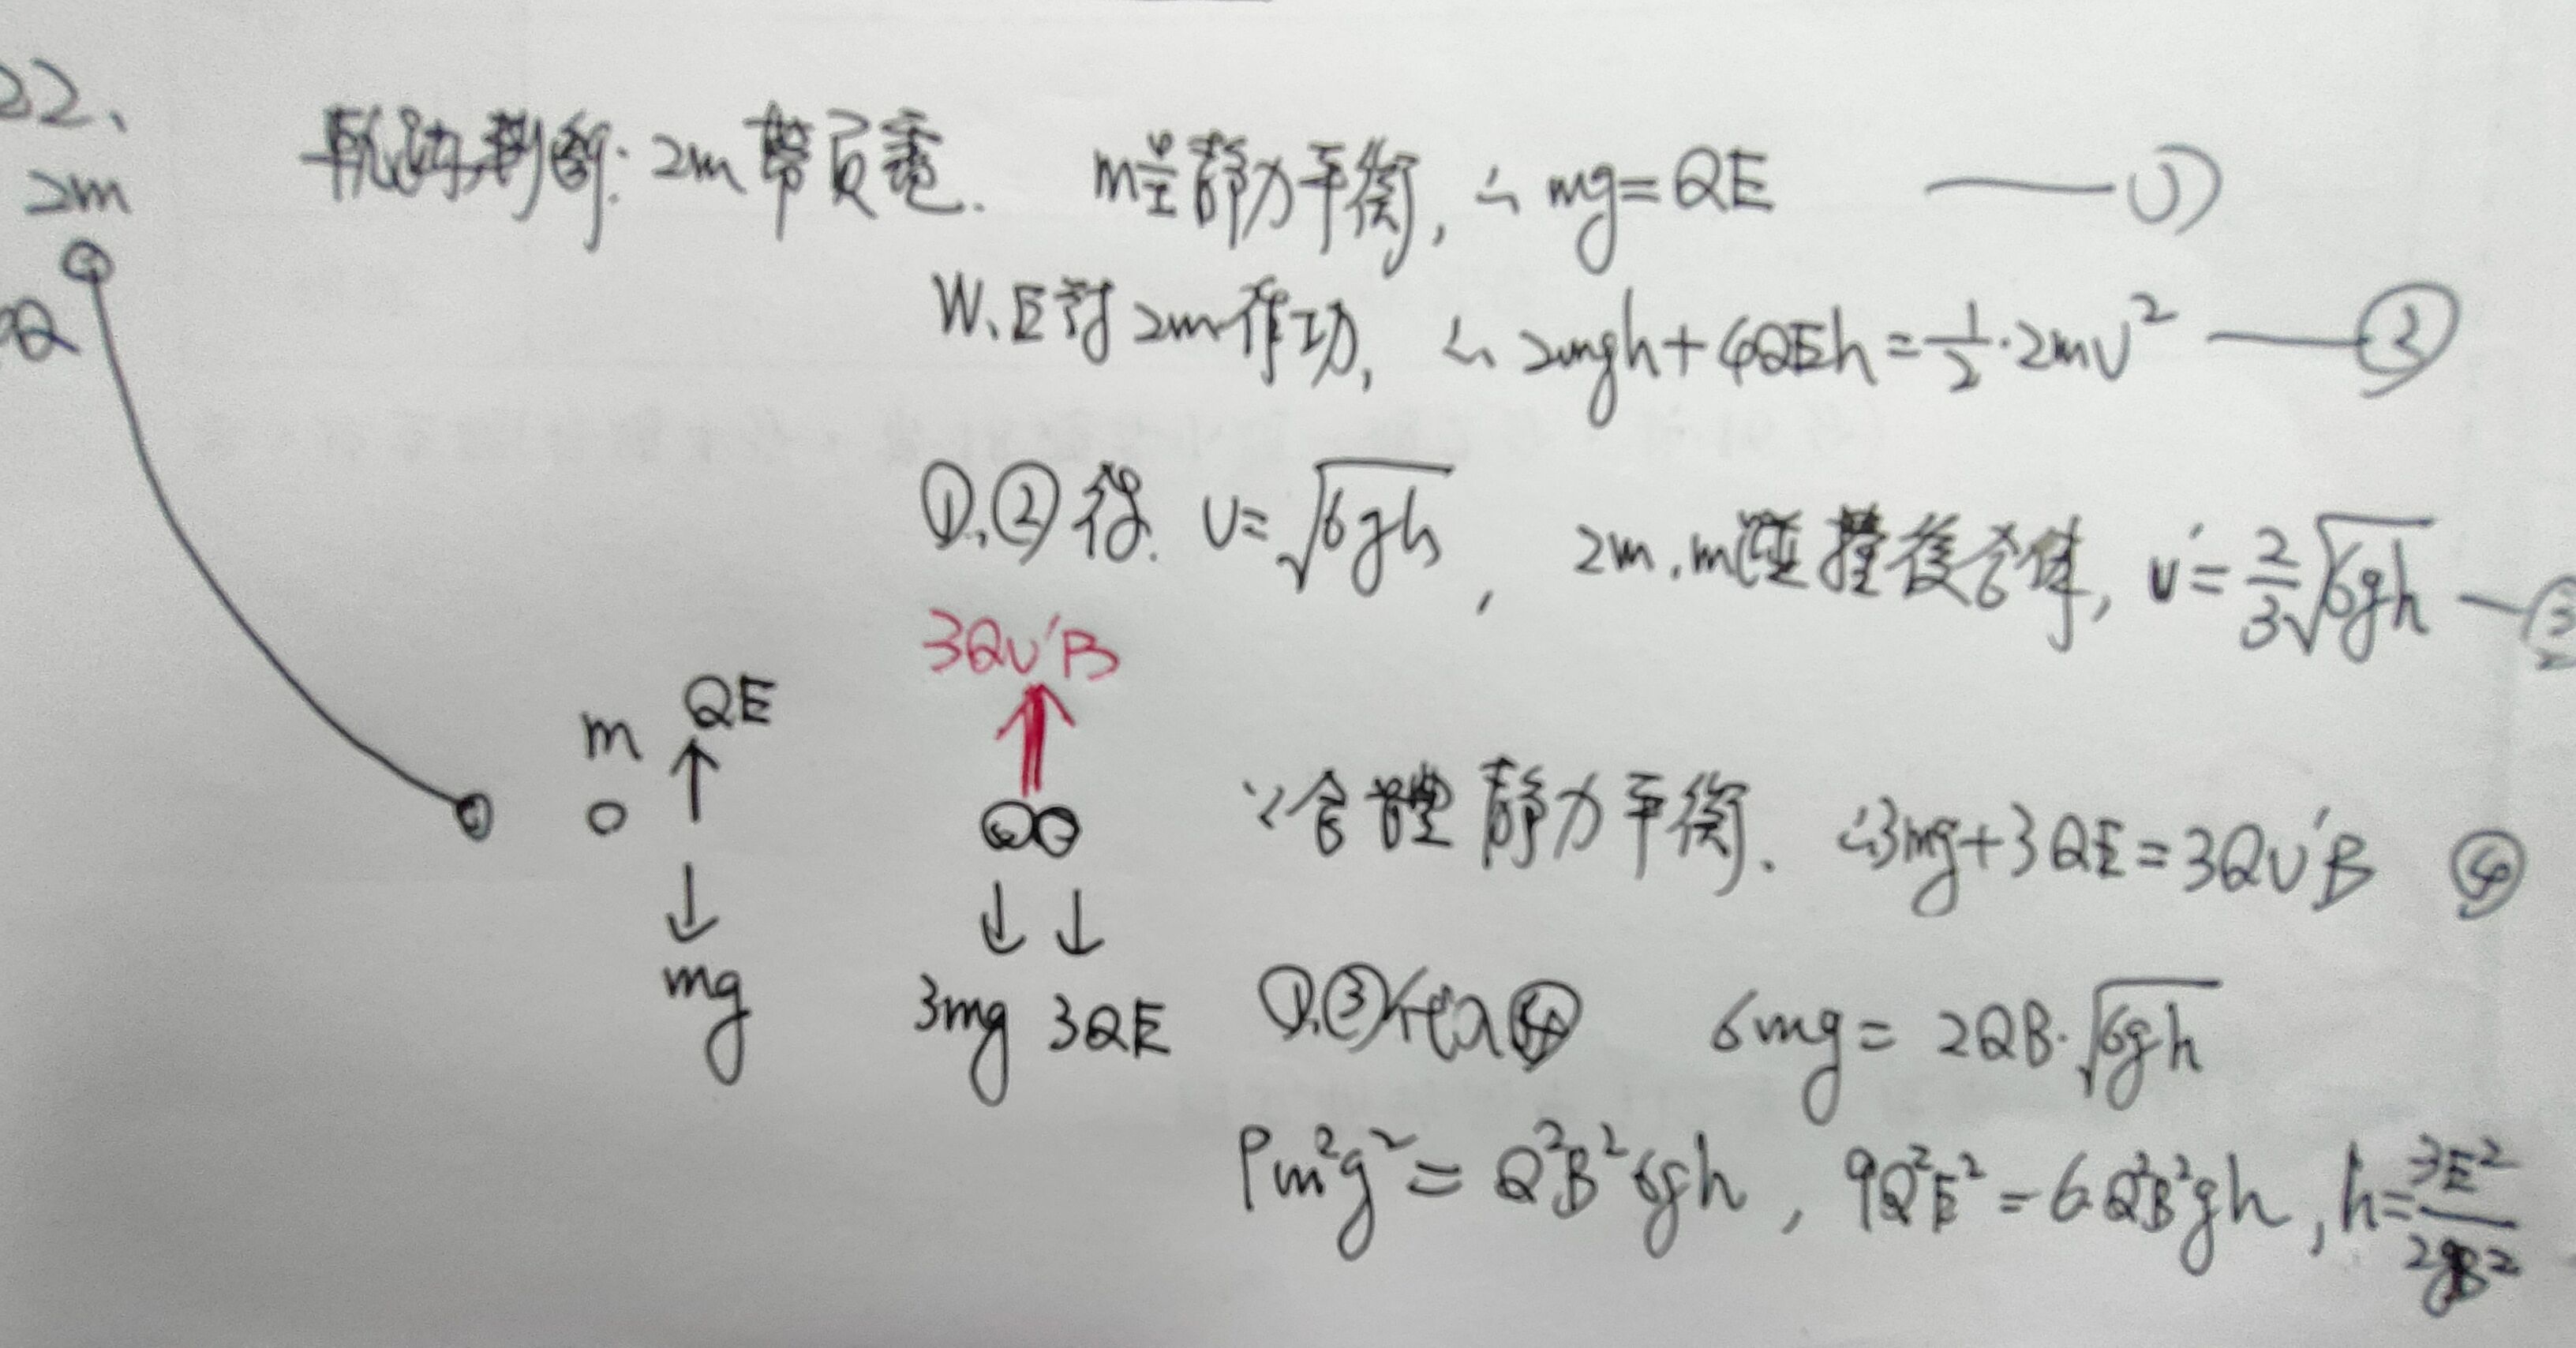 22、
軌跡判斷: 2m帶負電. m呈靜力平衡, ∴ mg=QE ——①
2m
W、E對2m作功, ∴ 2mgh+4QEh=½·2mv² ——②
Q
①.②得. v=√6gh , 2m.m碰撞後合体, v'=⅔√6gh —③
3Qv'B
m QE
∵合體靜力平衡. ∴3mg+3QE=3Qv'B ④
mg
3mg 3QE ①.③代入④ 6mg=2QB·√6gh
9m²g²=Q²B²6gh , 9Q²E²=6Q²B²gh , h=3E²/2gB²